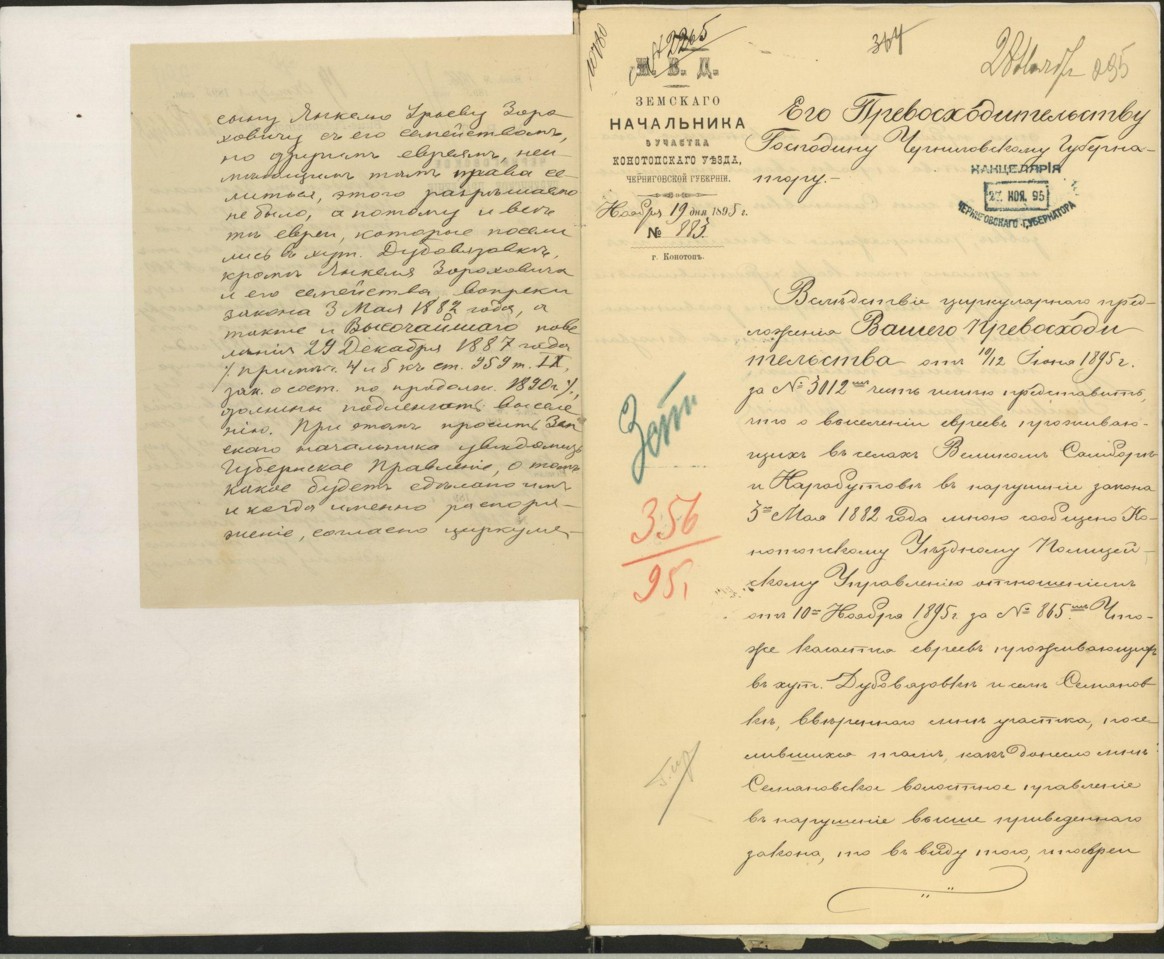 сыну Янкелю Урьеву Зора
ховичу съ его семействомъ,
но другимъ евреямъ, неи-
мѣющимъ тамъ права се-
литься, этого разрѣшаемо
не было, а потому и всѣ
тѣ евреи, которые посели
лись въ хут. Дубовязовкѣ,
кромѣ Янкеля Зораховича
и его семейства вопреки
закона 3 Мая 1882 года, а
также и Высочайшаго пове
лѣнія 29 Декабря 1887 года
/ примѣч. 4 и 5 къ ст. 959 т. IX,
зак. о сост. по продолж. 1890 г./,
должны подлежать выселе-
нію. При этомъ проситъ Зем
скаго начальника увѣдомить
Губернское Правленіе, о томъ
какое будетъ сдѣлано имъ
и когда именно распоря-
женіе, согласно циркуля-
№ 2265
364
28 Ноября 895
М. В. Д.
ЗЕМСКАГО
НАЧАЛЬНИКА
УЧАСТКА
КОНОТОПСКАГО УѢЗДА,
ЧЕРНИГОВСКОЙ ГУБЕРНІИ.
Ноября 19 дня 1895 г.
№ 883
г. Конотопъ.
Его Превосходительству
Господину Черниговскому Губерна-
тору.-
КАНЦЕЛЯРІЯ
27 НОЯ. 95
ЧЕРНИГОВСКАГО ГУБЕРНАТОРА
Вслѣдствіе циркулярнаго пред-
ложенія Вашего Превосходи
тельства отъ 10/12 Іюня 1895 г.
за № 3012 честь имѣю представить,
что о выселеніи евреевъ проживаю-
щихъ въ селахъ Великомъ Самборѣ
и Нарабутовкѣ въ нарушеніе закона
3го Мая 1882 года мною сообщено Ко-
нотопскому Уѣздному Полицей-
скому Управленію отношеніемъ
отъ 10го Ноября 1895 г за № 865. Что-
же касается евреевъ проживающихъ
въ хут. Дубовязовкѣ и селѣ Семянов
кѣ, ввѣреннаго мнѣ участка, посе-
лившихся тамъ, какъ донесло мнѣ
Семяновское волостное правленіе
въ нарушеніе выше приведеннаго
закона, то въ виду того, что евреи
356
95,